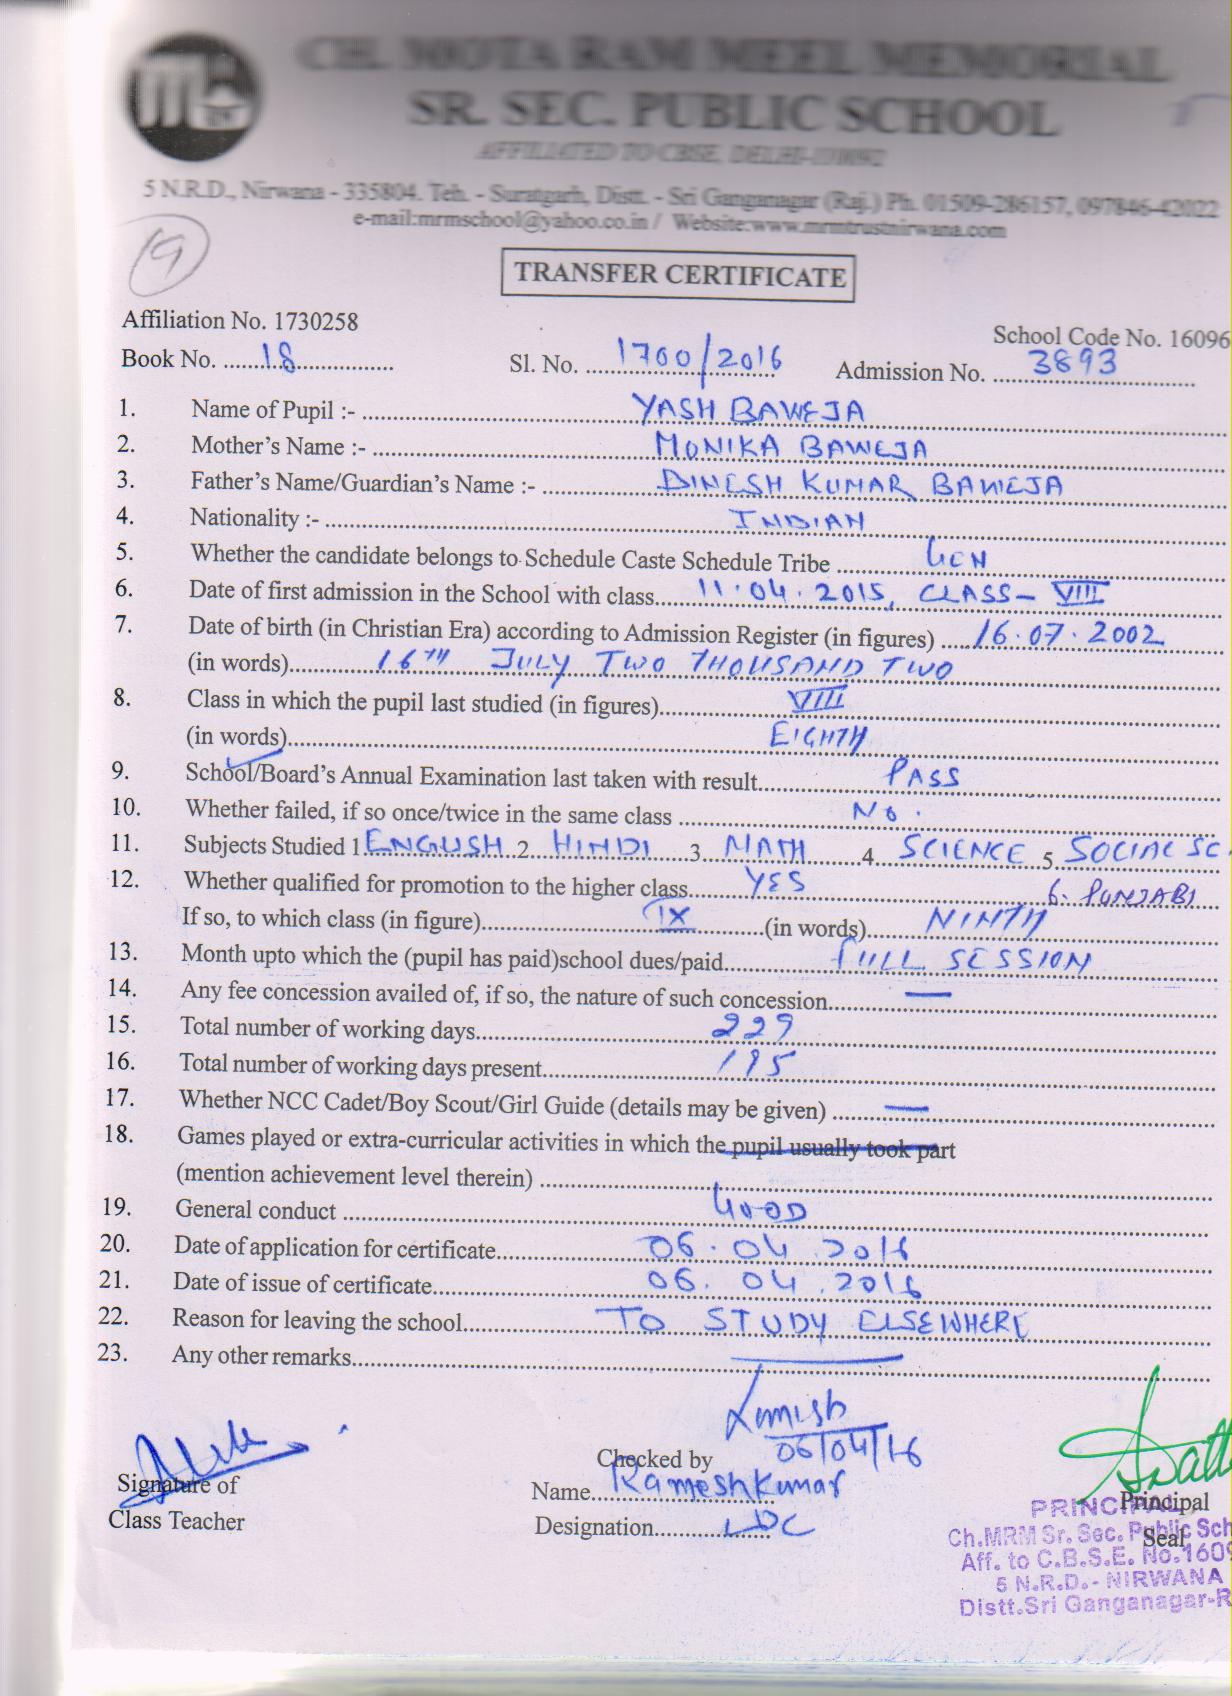 CH. MOTA RAM MEEL MEMORIAL
SR. SEC. PUBLIC SCHOOL
AFFILIATED TO CBSE, DELHI-110092
5 N.R.D., Nirwana - 335804. Teh. - Suratgarh, Distt. - Sri Ganganagar (Raj.) Ph. 01509-286157, 097846-42022
e-mail:mrmschool@yahoo.co.in / Website:www.mrmtrustnirwana.com
19
TRANSFER CERTIFICATE
Affiliation No. 1730258
School Code No. 16096
Book No. 18 Sl. No. 1700/2016 Admission No. 3893
1. Name of Pupil :- YASH BAWEJA
2. Mother's Name :- MONIKA BAWEJA
3. Father's Name/Guardian's Name :- DINESH KUMAR BAWEJA
4. Nationality :- INDIAN
5. Whether the candidate belongs to Schedule Caste Schedule Tribe GEN
6. Date of first admission in the School with class 11.04.2015, CLASS - VIII
7. Date of birth (in Christian Era) according to Admission Register (in figures) 16.07.2002
(in words) 16TH JULY TWO THOUSAND TWO
8. Class in which the pupil last studied (in figures) VIII
(in words) EIGHTH
9. School/Board's Annual Examination last taken with result PASS
10. Whether failed, if so once/twice in the same class No.
11. Subjects Studied 1 ENGLISH 2 HINDI 3. MATH 4. SCIENCE 5. SOCIAL SC.
6. PUNJABI
12. Whether qualified for promotion to the higher class YES
If so, to which class (in figure) IX (in words) NINTH
13. Month upto which the (pupil has paid)school dues/paid FULL SESSION
14. Any fee concession availed of, if so, the nature of such concession —
15. Total number of working days 229
16. Total number of working days present 195
17. Whether NCC Cadet/Boy Scout/Girl Guide (details may be given) —
18. Games played or extra-curricular activities in which the pupil usually took part
(mention achievement level therein)
19. General conduct GOOD
20. Date of application for certificate 06.04.2016
21. Date of issue of certificate 06.04.2016
22. Reason for leaving the school TO STUDY ELSEWHERE
23. Any other remarks —
06/04/16
Checked by
Signature of
Class Teacher
Name Ramesh Kumar
Designation LDC
Principal
Seal
PRINCIPAL
Ch.MRM Sr. Sec. Public Sch
Aff. to C.B.S.E. No.1609
5 N.R.D.- NIRWANA
Distt.Sri Ganganagar-R